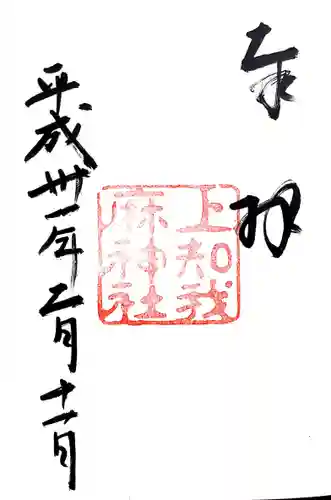 奉拝
上知我
麻神社
平成卅一年二月十一日